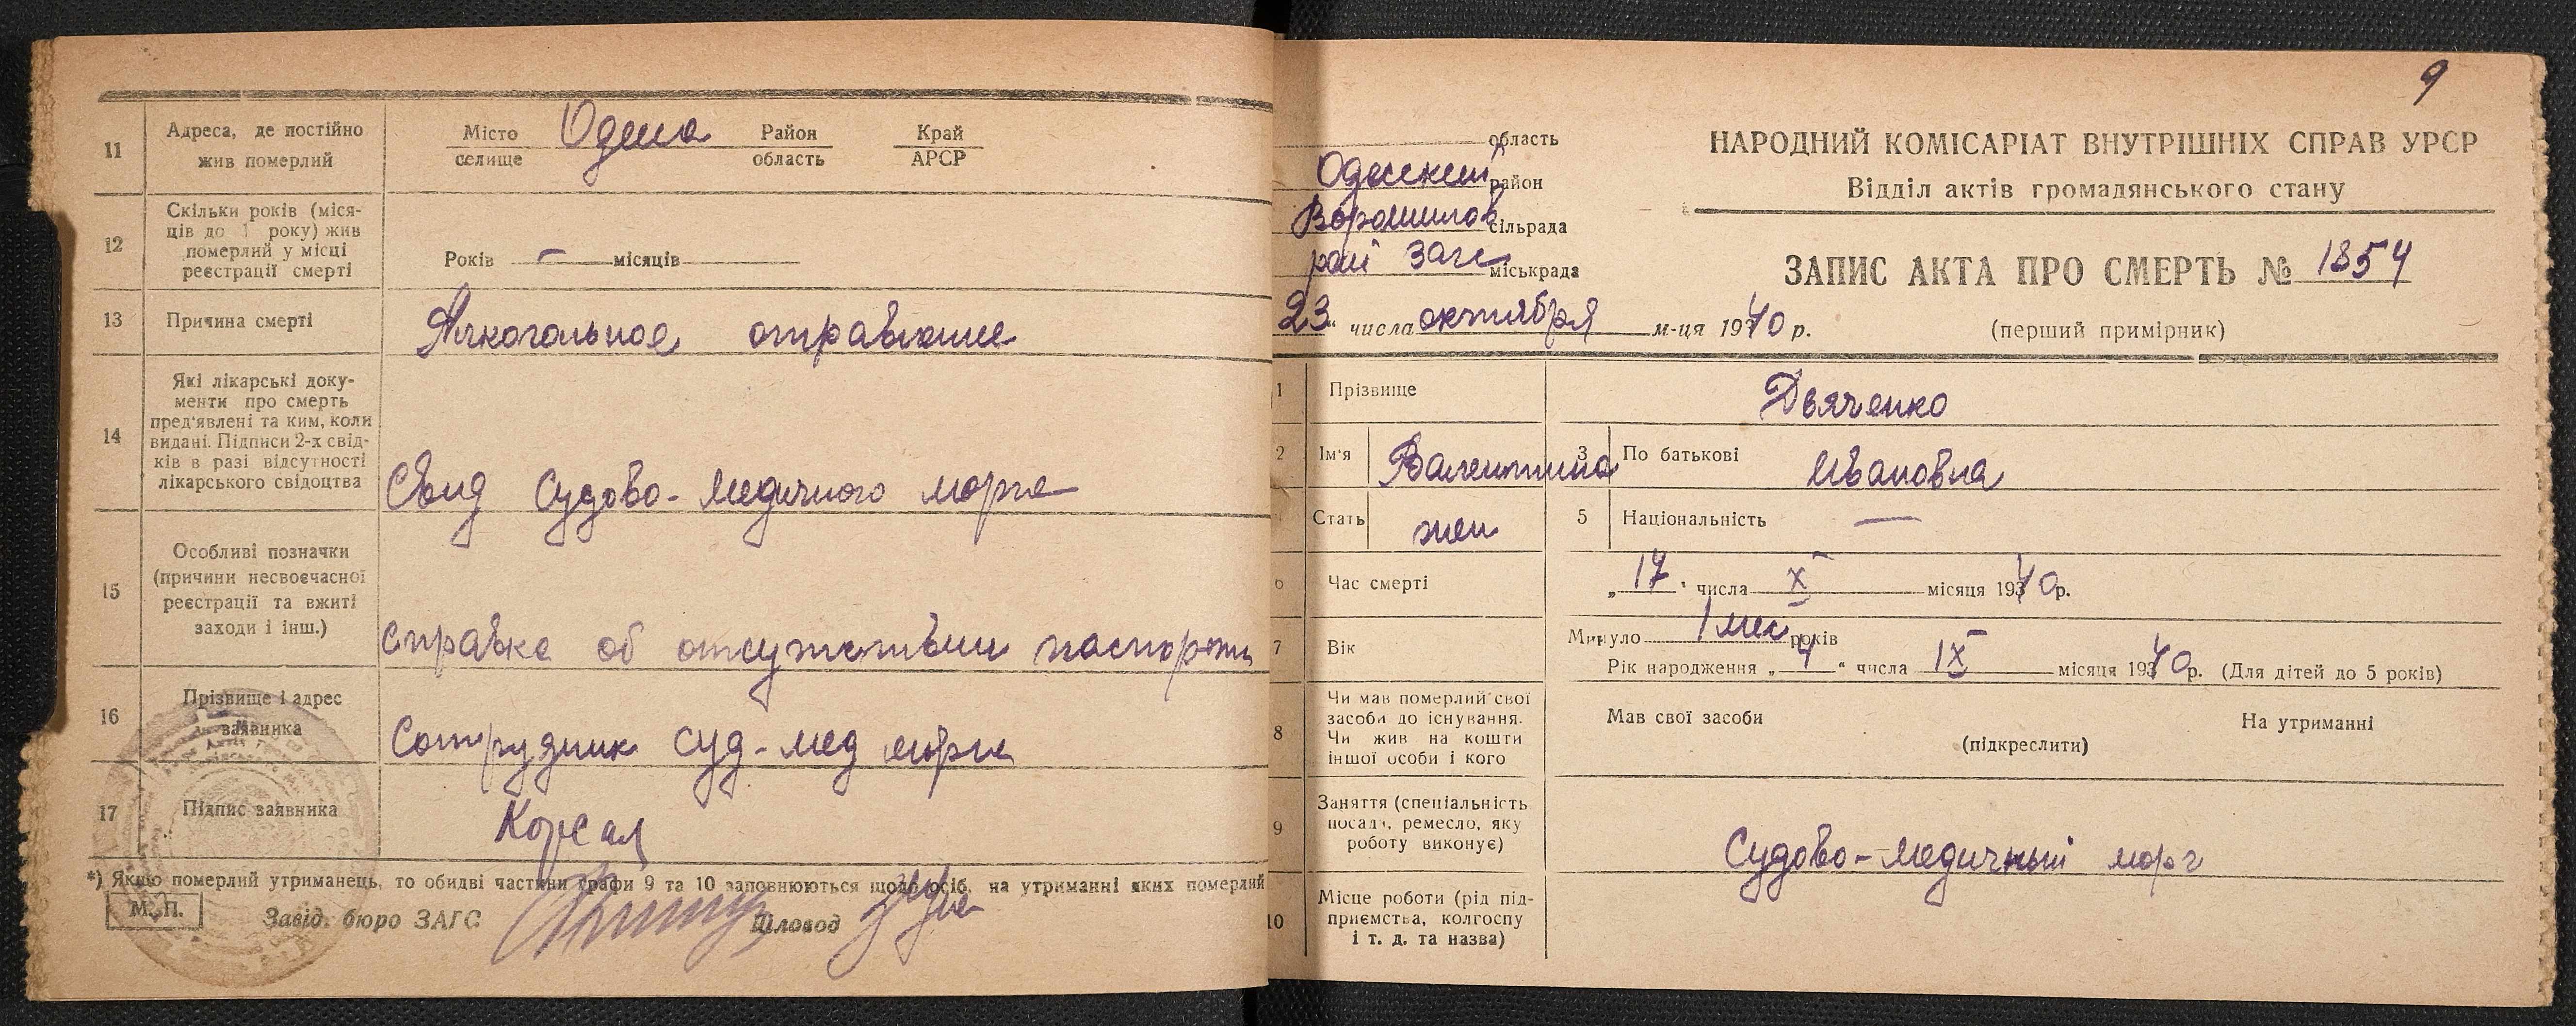 11
Адреса, де постійно
жив померлий
Місто
селище
Одесса
Район
область
Край
АРСР
12
Скільки років (міся-
ців до 1 року) жив
померлий у місці
реєстрації смерті
Років – місяців
13
Причина смерті
Алкогольное отравление
14
Які лікарські доку-
менти про смерть
пред'явлені та ким, коли
видані. Підписи 2-х свід-
ків в разі відсутності
лікарського свідоцтва
Свид Судово-медичного морга
15
Особливі позначки
(причини несвоєчасної
реєстрації та вжиті
заходи і інш.)
справка об отсутствии паспорта
16
Прізвище і адрес
заявника
Сотрудник суд-мед морга
17
Підпис заявника
*) Якщо померлий утриманець, то обидві частини графи 9 та 10 заповнюються щодо осіб, на утриманні яких померлий
М. П.
Завід. бюро ЗАГС
Діловод
9
область
Одесский район
Ворошилов сільрада
рай загс міськрада
23 " числа октября м-ця 1940 р.
НАРОДНИЙ КОМІСАРІАТ ВНУТРІШНІХ СПРАВ УРСР
Відділ актів громадянського стану
ЗАПИС АКТА ПРО СМЕРТЬ № 1854
(перший примірник)
1
Прізвище
Дьяченко
2
Ім'я
Валентина
3
По батькові
Ивановна
Стать
жен
5
Національність
—
6
Час смерті
„ 17 " числа X місяця 1940р.
7
Вік
Минуло 1 мес років
Рік народження „ 4 " числа IX місяця 1940р. (Для дітей до 5 років)
8
Чи мав померлий свої
засоби до існування.
Чи жив на кошти
іншої особи і кого
Мав свої засоби
На утриманні
(підкреслити)
9
Заняття (спеціальність
посада, ремесло, яку
роботу виконує)
Судово-медичный морг
10
Місце роботи (рід під-
приємства, колгоспу
і т. д. та назва)